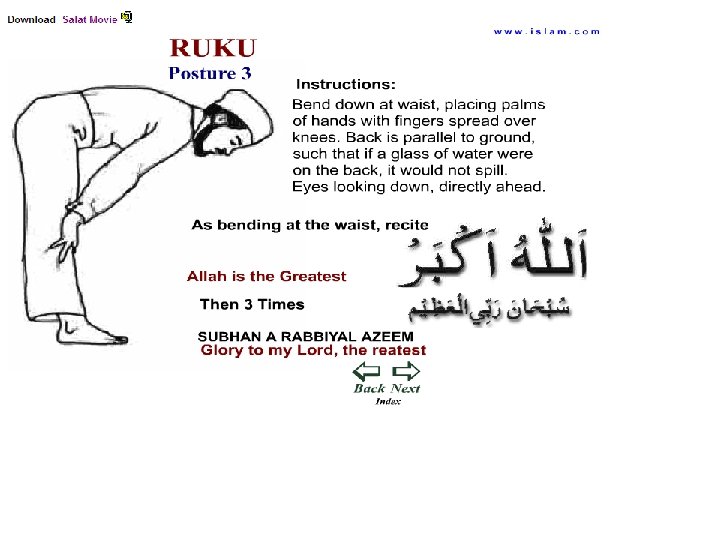 Download Salat Movie
www.islam.com
RUKU
Posture 3
Instructions:
Bend down at waist, placing palms
of hands with fingers spread over
knees. Back is parallel to ground,
such that if a glass of water were
on the back, it would not spill.
Eyes looking down, directly ahead.
As bending at the waist, recite
اَللّٰهُ اَكْبَرُ
Allah is the Greatest
Then 3 Times
سُبْحَانَ رَبِّيِ الْعَظِيْمِ
SUBHAN A RABBIYAL AZEEM
Glory to my Lord, the reatest
Back Next
Index